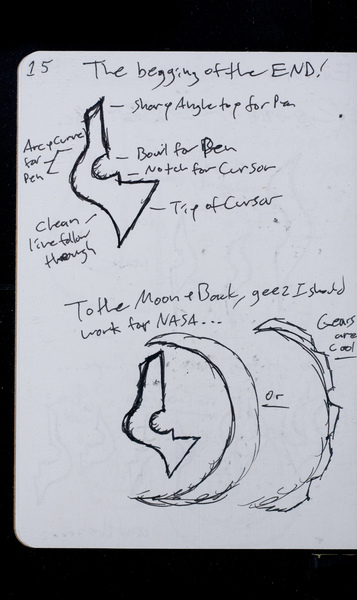 15
The begging of the END!
Sharp Angle top for Pen
Arc & Curve
for
Pen
Bowl for Pen
Notch for Cursor
Tip of Cursor
Clean
line follow
through
To the Moon & Back, geez I should
work for NASA...
Gears
are
cool
or